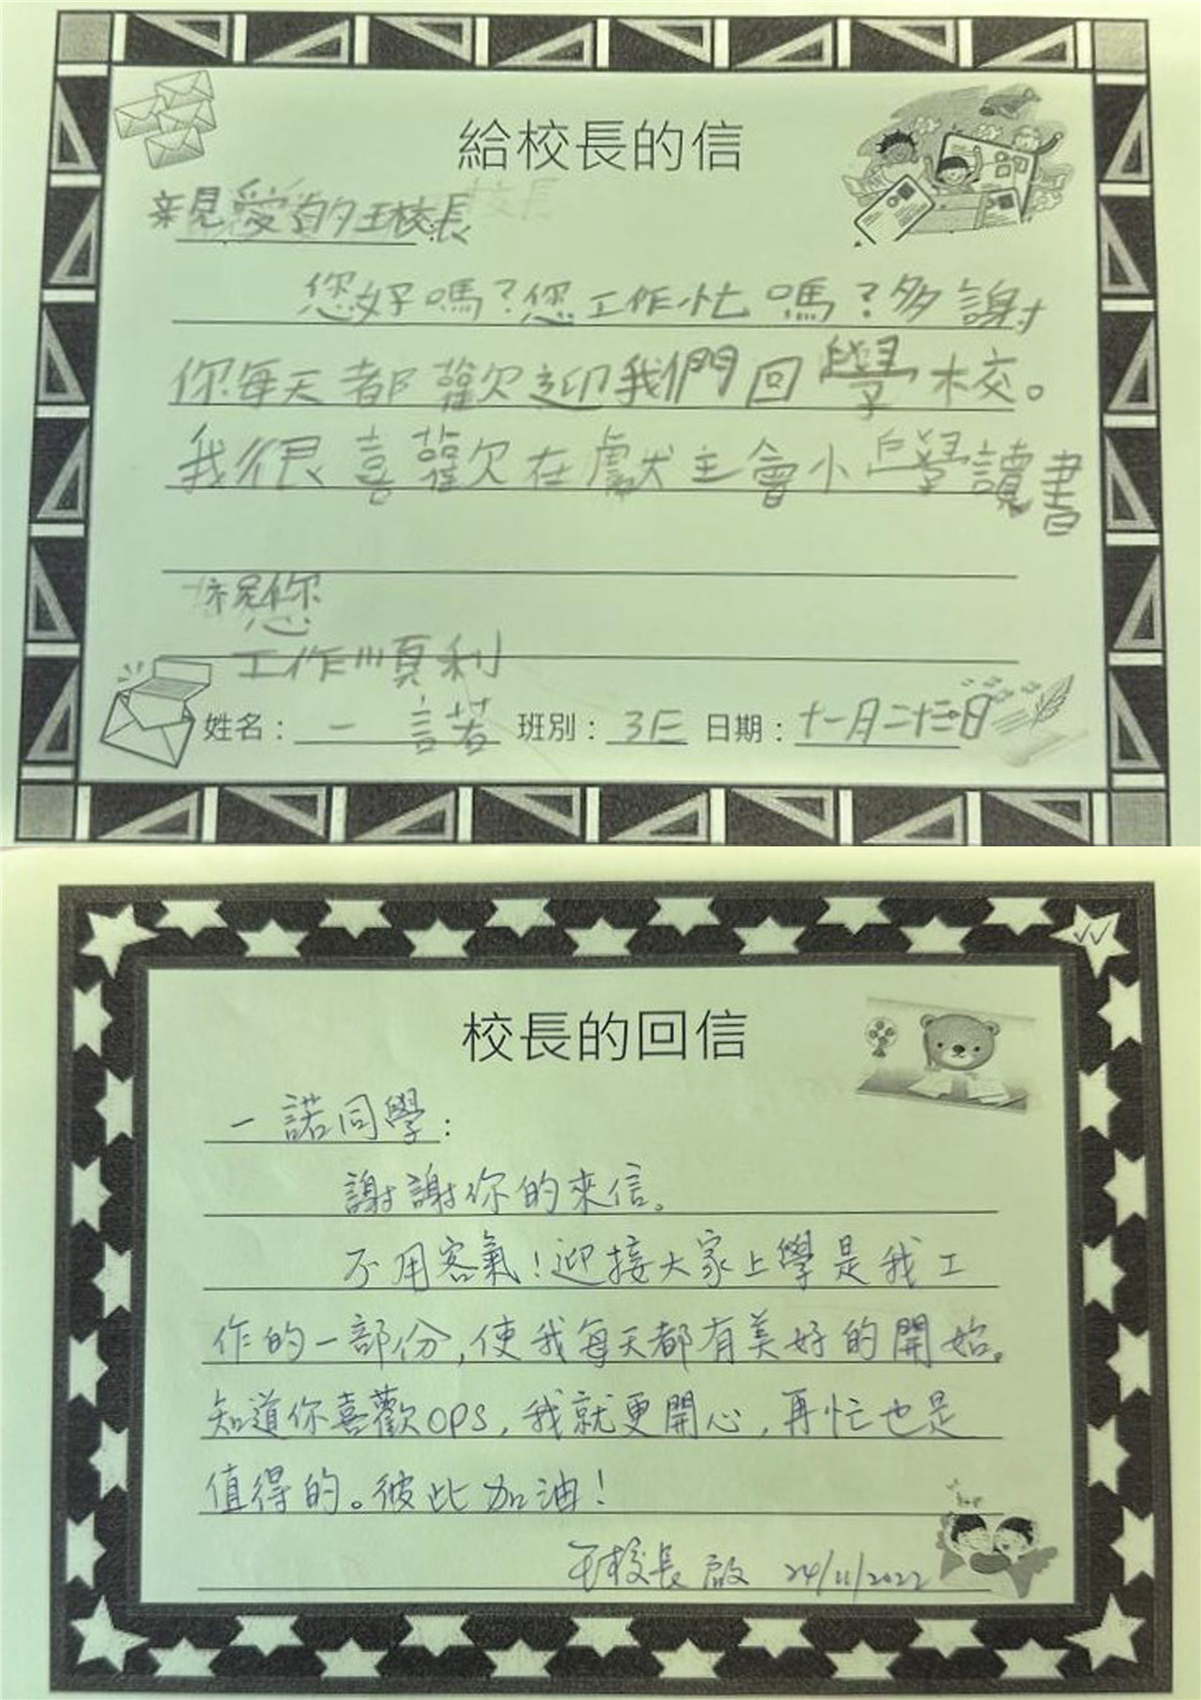 給校長的信
親愛的王校長
您好嗎？您工作忙嗎？多謝
你每天都歡迎我們回學校。
我很喜歡在獻主會小學讀書
祝您
工作順利
姓名：一諾 班別：3E 日期：十一月二十三日
校長的回信
一諾同學：
謝謝你的來信。
不用客氣！迎接大家上學是我工
作的一部份，使我每天都有美好的開始。
知道你喜歡OPS，我就更開心，再忙也是
值得的。彼此加油！
王校長 啟 24/11/2022